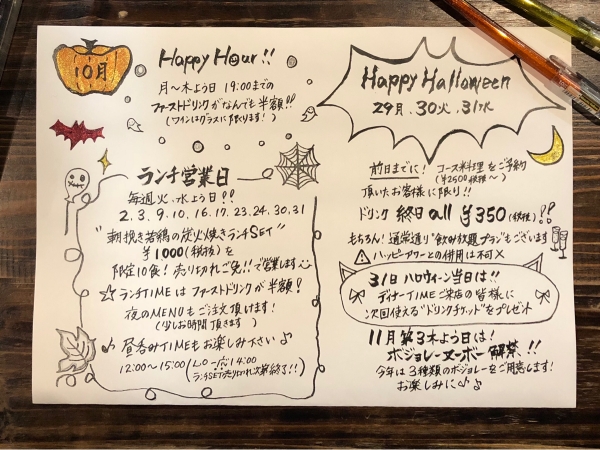 10月
Happy Hour!!
月〜木よう日 19:00までの
ファーストドリンクがなんでも半額!!
(ワインはグラスに限ります!)
ランチ営業日
毎週火.水よう日!!
2.3.9.10.16.17.23.24.30.31
"朝挽き若鶏の炭火焼きランチSET"
¥1000(税抜)を
限定10食!売り切れご免!!で営業します
☆ランチTIMEはファーストドリンクが半額!
夜のMENUもご注文頂けます!
(少しお時間頂きます)
♪昼呑みTIMEもお楽しみ下さい♪
12:00〜15:00(L.O 14:00
ランチSET売り切れ次第終了!!)
Happy Halloween
29月.30火.31水
前日までに!コース料理をご予約
(¥2500税抜〜)
頂いたお客様に限り!!
ドリンク 終日all ¥350(税抜)!!
もちろん!通常通り"飲み放題プラン"もございます
⚠ハッピーアワーとの併用は不可×
31日ハロウィーン当日は!!
ディナーTIMEご来店の皆様に
次回使える"ドリンクチケット"をプレゼント
11月第3木よう日は!
ボジョレーヌーボー解禁!!
今年は3種類のボジョレーをご用意します!
お楽しみに♪♪